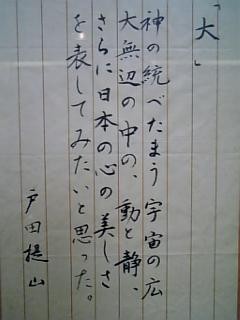 「大」
神の統べたまう宇宙の広
大無辺の中の、動と静、
さらに日本の心の美しさ
を表してみたいと思った。
戸田提山